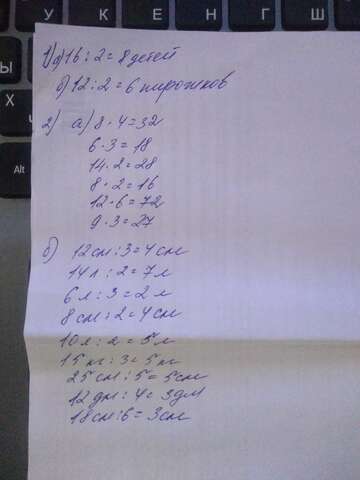 У К Е Н Г
1) а) 16 : 2 = 8 детей
б) 12 : 2 = 6 пирожков
2) а) 8 · 4 = 32
6 · 3 = 18
14 · 2 = 28
8 · 2 = 16
12 · 6 = 72
9 · 3 = 27
б) 12 см : 3 = 4 см
14 л : 2 = 7 л
6 л : 3 = 2 л
8 см : 2 = 4 см
10 л : 2 = 5 л
15 кг : 3 = 5 кг
25 см : 5 = 5 см
12 дм : 4 = 3 дм
18 см : 6 = 3 см
Ы
Ч
Alt